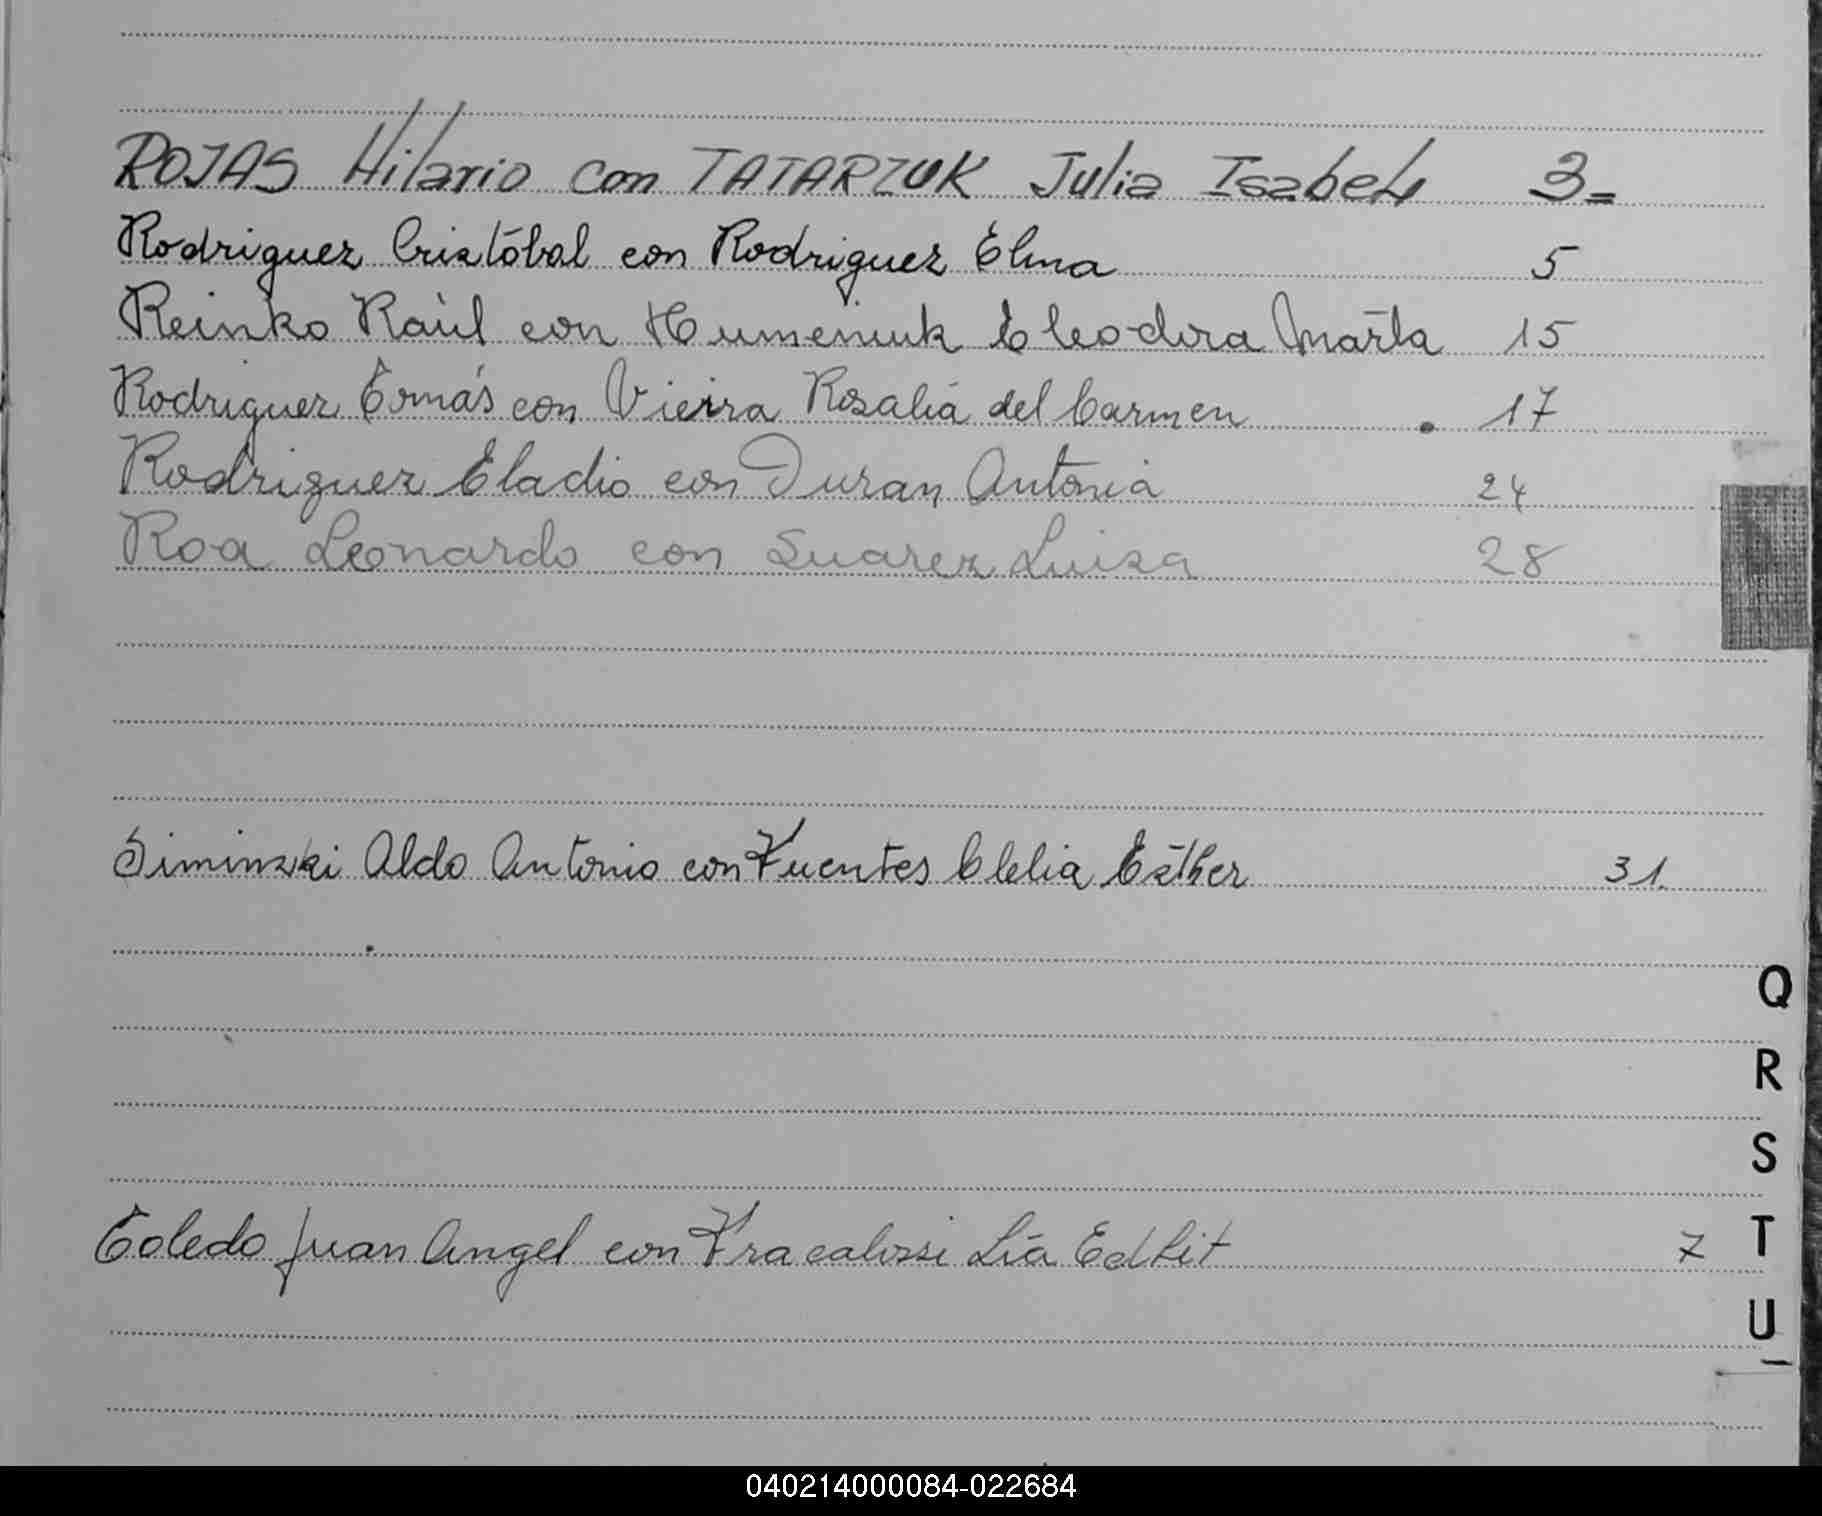 ROJAS Hilario con TATARZUK Julia Isabel 3=
Rodriguez Cristóbal con Rodriguez Elma 5
Reinko Raúl con Humeniuk Cleodora Marta 15
Rodriguez Tomás con Vieira Rosalía del Carmen . 17
Rodriguez Eladio con Duran Antonia 24
Roa Leonardo con Suarez Luisa 28
Siminski Aldo Antonio con Fuentes Clelia Esther 31.
Q
R
S
Toledo Juan Angel con Fracalossi Lía Edhit 7
T
U
040214000084-022684